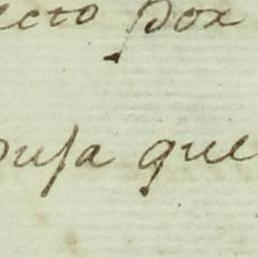 ecto por
ousa que